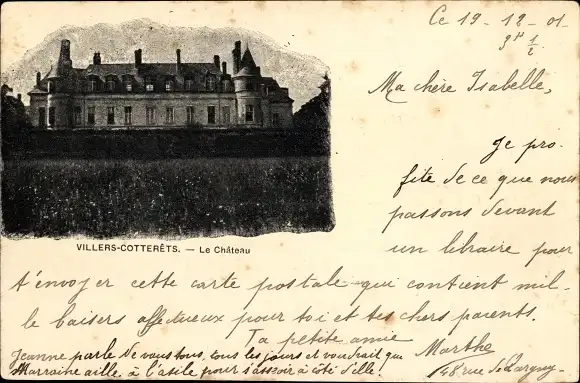 Ce 19-12-01
3h 1/2
Ma chère Isabelle,
Je pro-
fite de ce que nous
passons devant
un libraire pour
t'envoyer cette carte postale qui contient mil-
le baisers affectueux pour toi et tes chers parents.
Ta petite amie
Marthe
48 rue de Largny
Jeanne parle de vous tous, tous les jours et voudrait que
Marraine aille à l'asile pour s'asseoir à côté d'elle.
VILLERS-COTTERÊTS. — Le Château